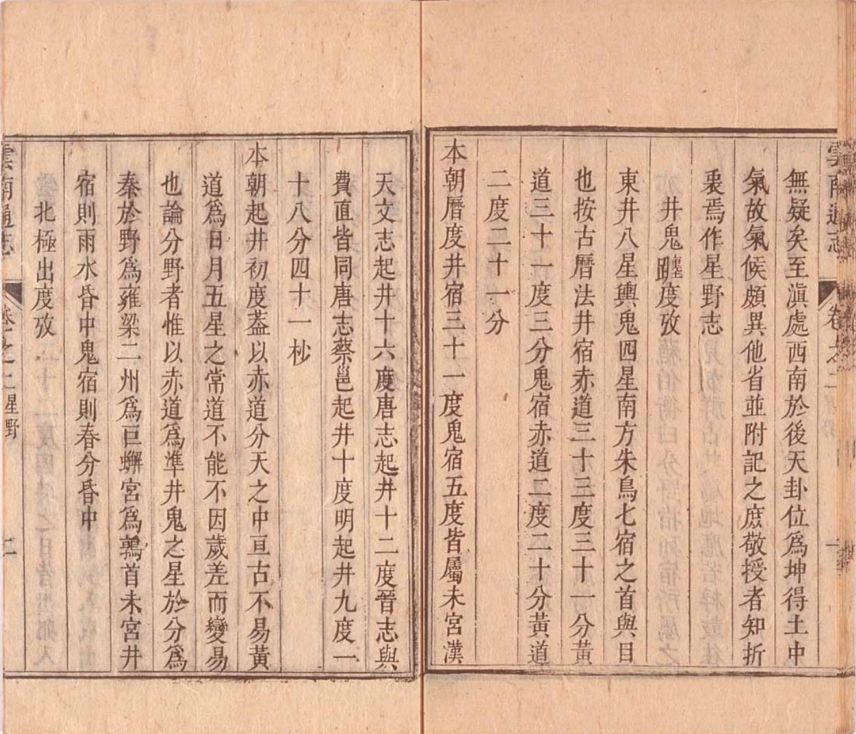 無疑矣至滇處西南於後天卦位爲坤得土中
氣故氣候頗異他省並附記之庶敬授者知折
衷焉作星野志
井鬼躔度攷
東井八星輿鬼四星南方朱鳥七宿之首與目
也按古曆法井宿赤道三十三度三十一分黃
道三十一度三分鬼宿赤道二度二十分黃道
二度二十一分
本朝曆度井宿三十一度鬼宿五度皆屬未宮漢
天文志起井十六度唐志起井十二度晉志與
費直皆同唐志蔡邕起井十度明起井九度一
十八分四十一杪
本朝起井初度葢以赤道分天之中亘古不易黃
道爲日月五星之常道不能不因歲差而變易
也論分野者惟以赤道爲準井鬼之星於分爲
秦於野爲雍梁二州爲巨蠏宮爲鶉首未宮井
宿則雨水昏中鬼宿則春分昏中
北極出度攷
雲南通志
卷之二 星野
二